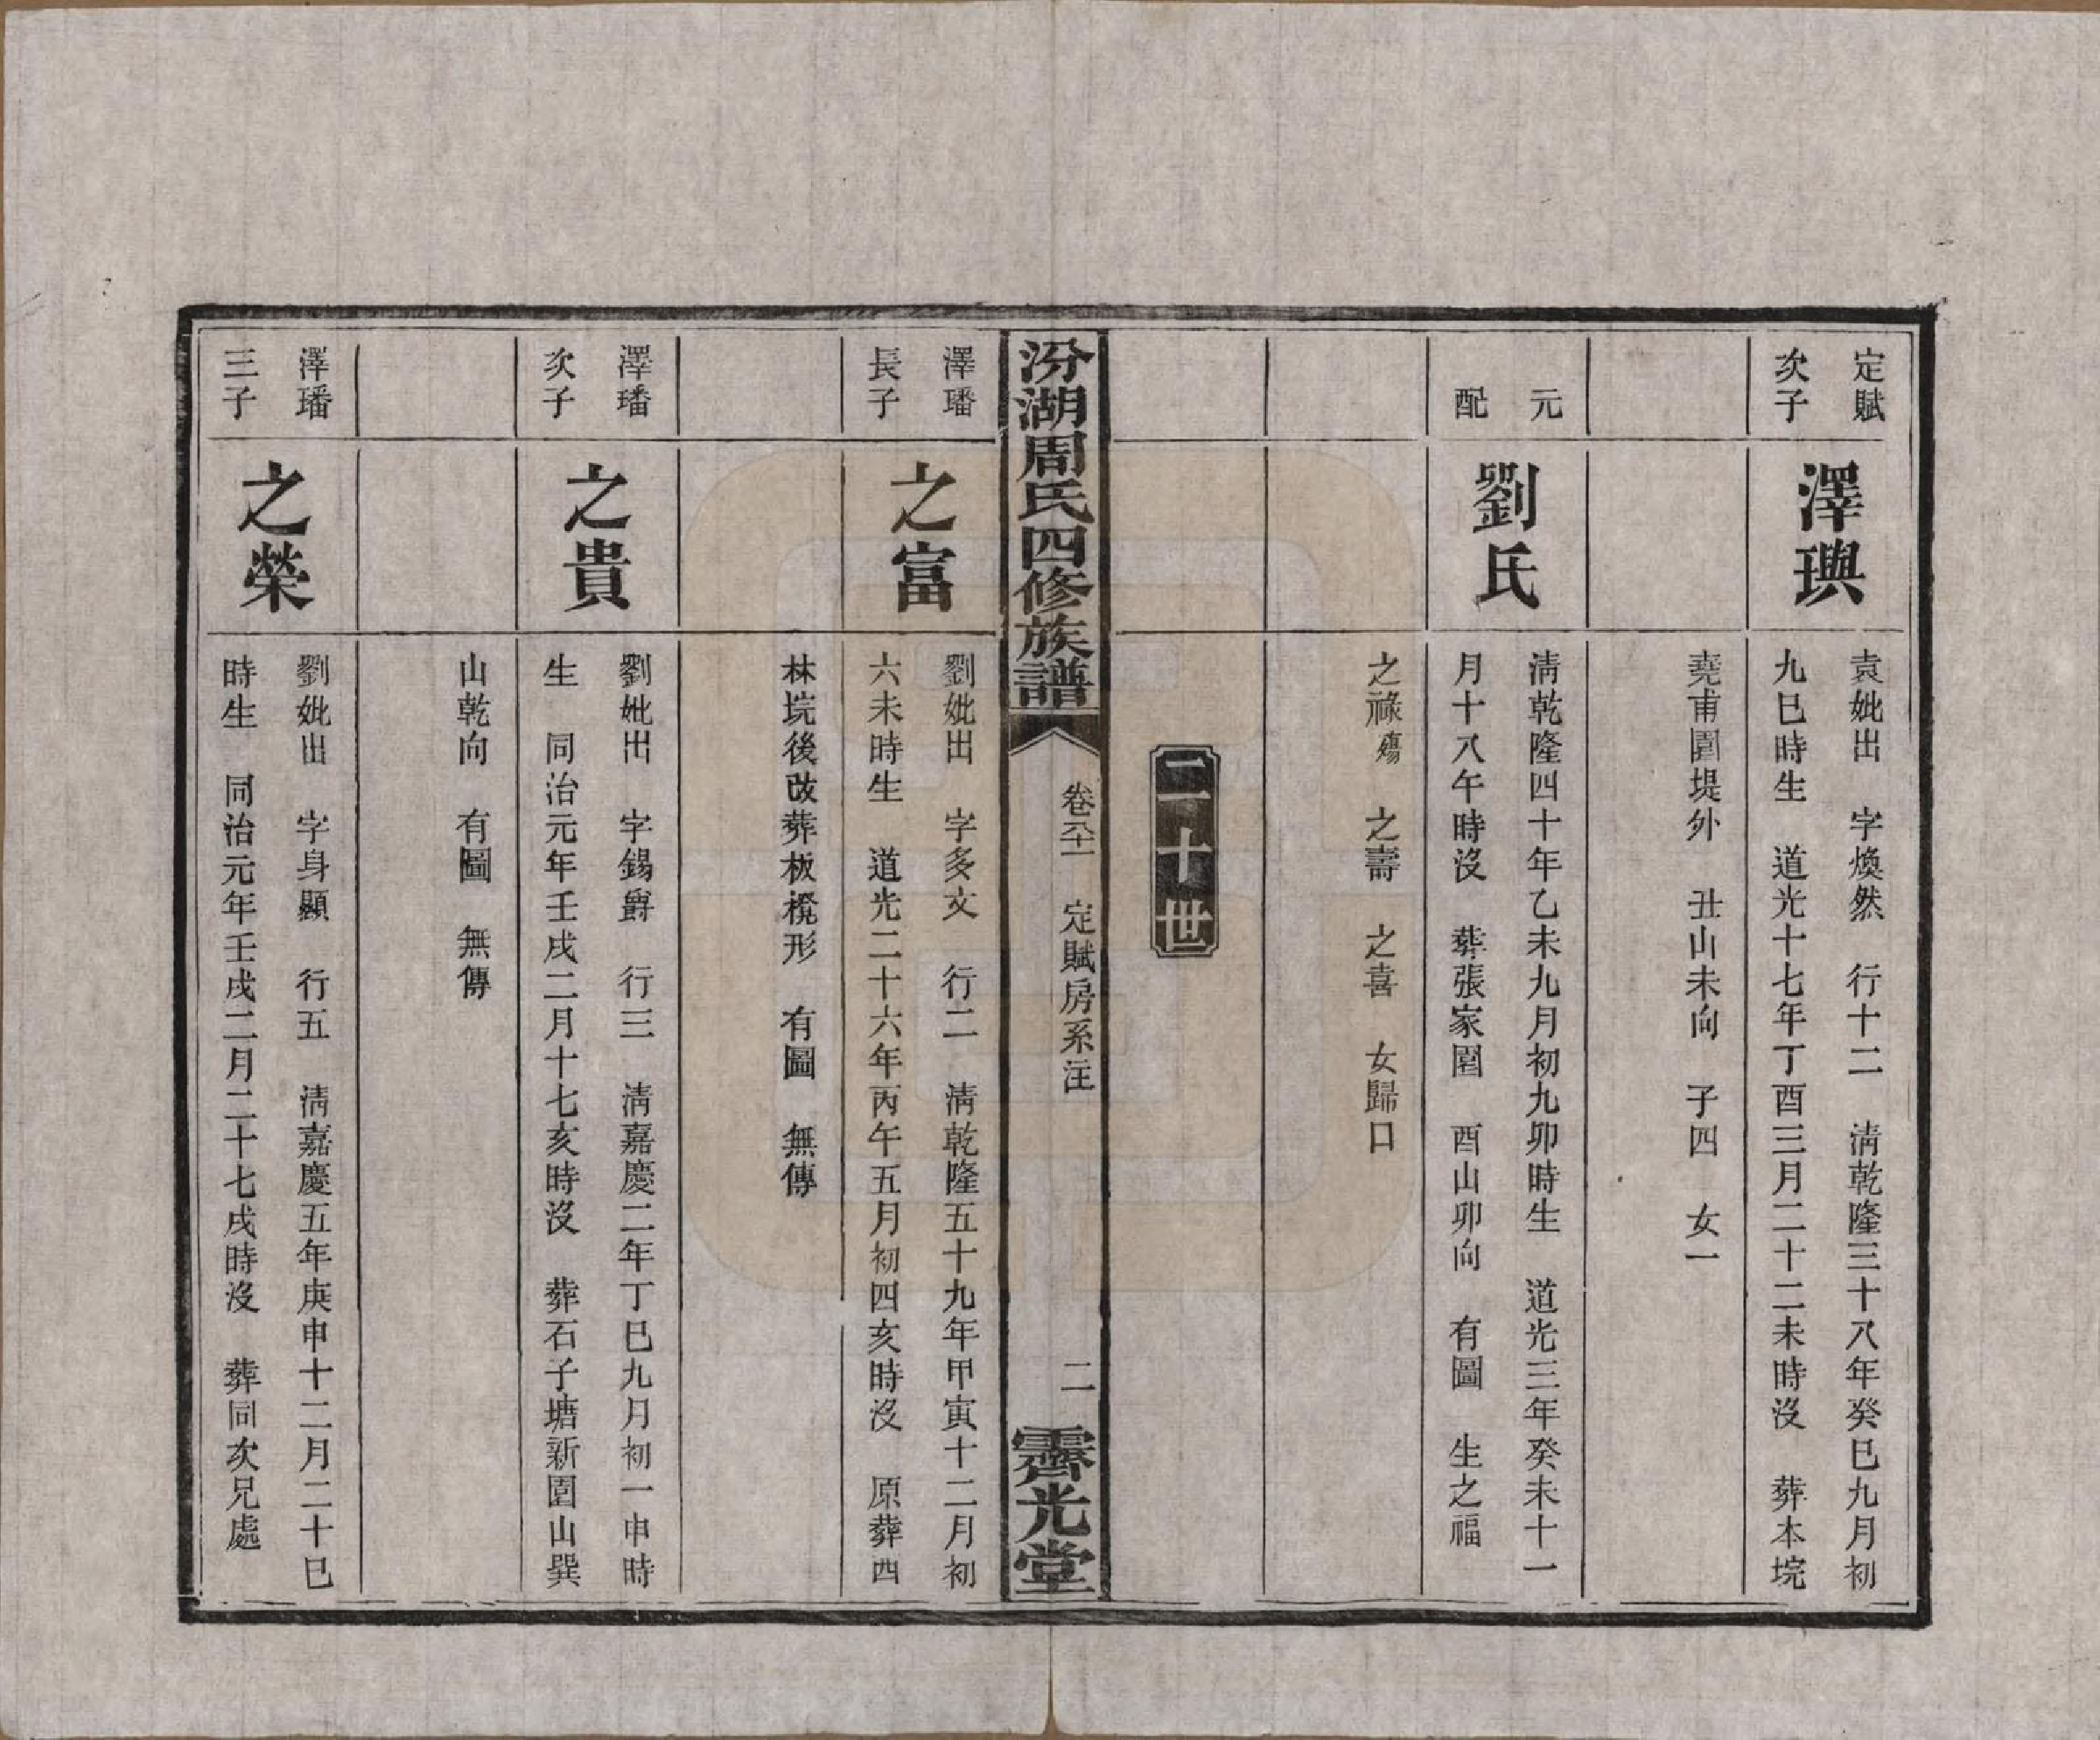 定賦
次子
澤璵
袁妣出　字煥然　行十二　淸乾隆三十八年癸巳九月初
九巳時生　道光十七年丁酉三月二十二未時沒　葬本垸
堯甫圍堤外　丑山未向　子四　女一
元
配
劉氏
淸乾隆四十年乙未九月初九卯時生　道光三年癸未十一
月十八午時沒　葬張家園　酉山卯向　有圖　生之福
之祿殤　之壽　之喜　女歸口
二十世
汾湖周氏四修族譜
卷六十一　定賦房系注
二
霽光堂
澤璠
長子
之富
劉妣出　字多文　行二　淸乾隆五十九年甲寅十二月初
六未時生　道光二十六年丙午五月初四亥時沒　原葬西
林垸後改葬板櫈形　有圖　無傳
澤璠
次子
之貴
劉妣出　字錫爵　行三　淸嘉慶二年丁巳九月初一申時
生　同治元年壬戌二月十七亥時沒　葬石子塘新園山巽
山乾向　有圖　無傳
澤璠
三子
之榮
劉妣出　字身顯　行五　淸嘉慶五年庚申十二月二十巳
時生　同治元年壬戌二月二十七戌時沒　葬同次兄處